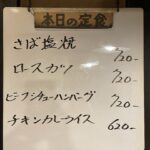 本日の定食
さば塩焼 720-
ロースカツ 720-
ビーフシチューハンバーグ 720-
チキンカレーライス 620-